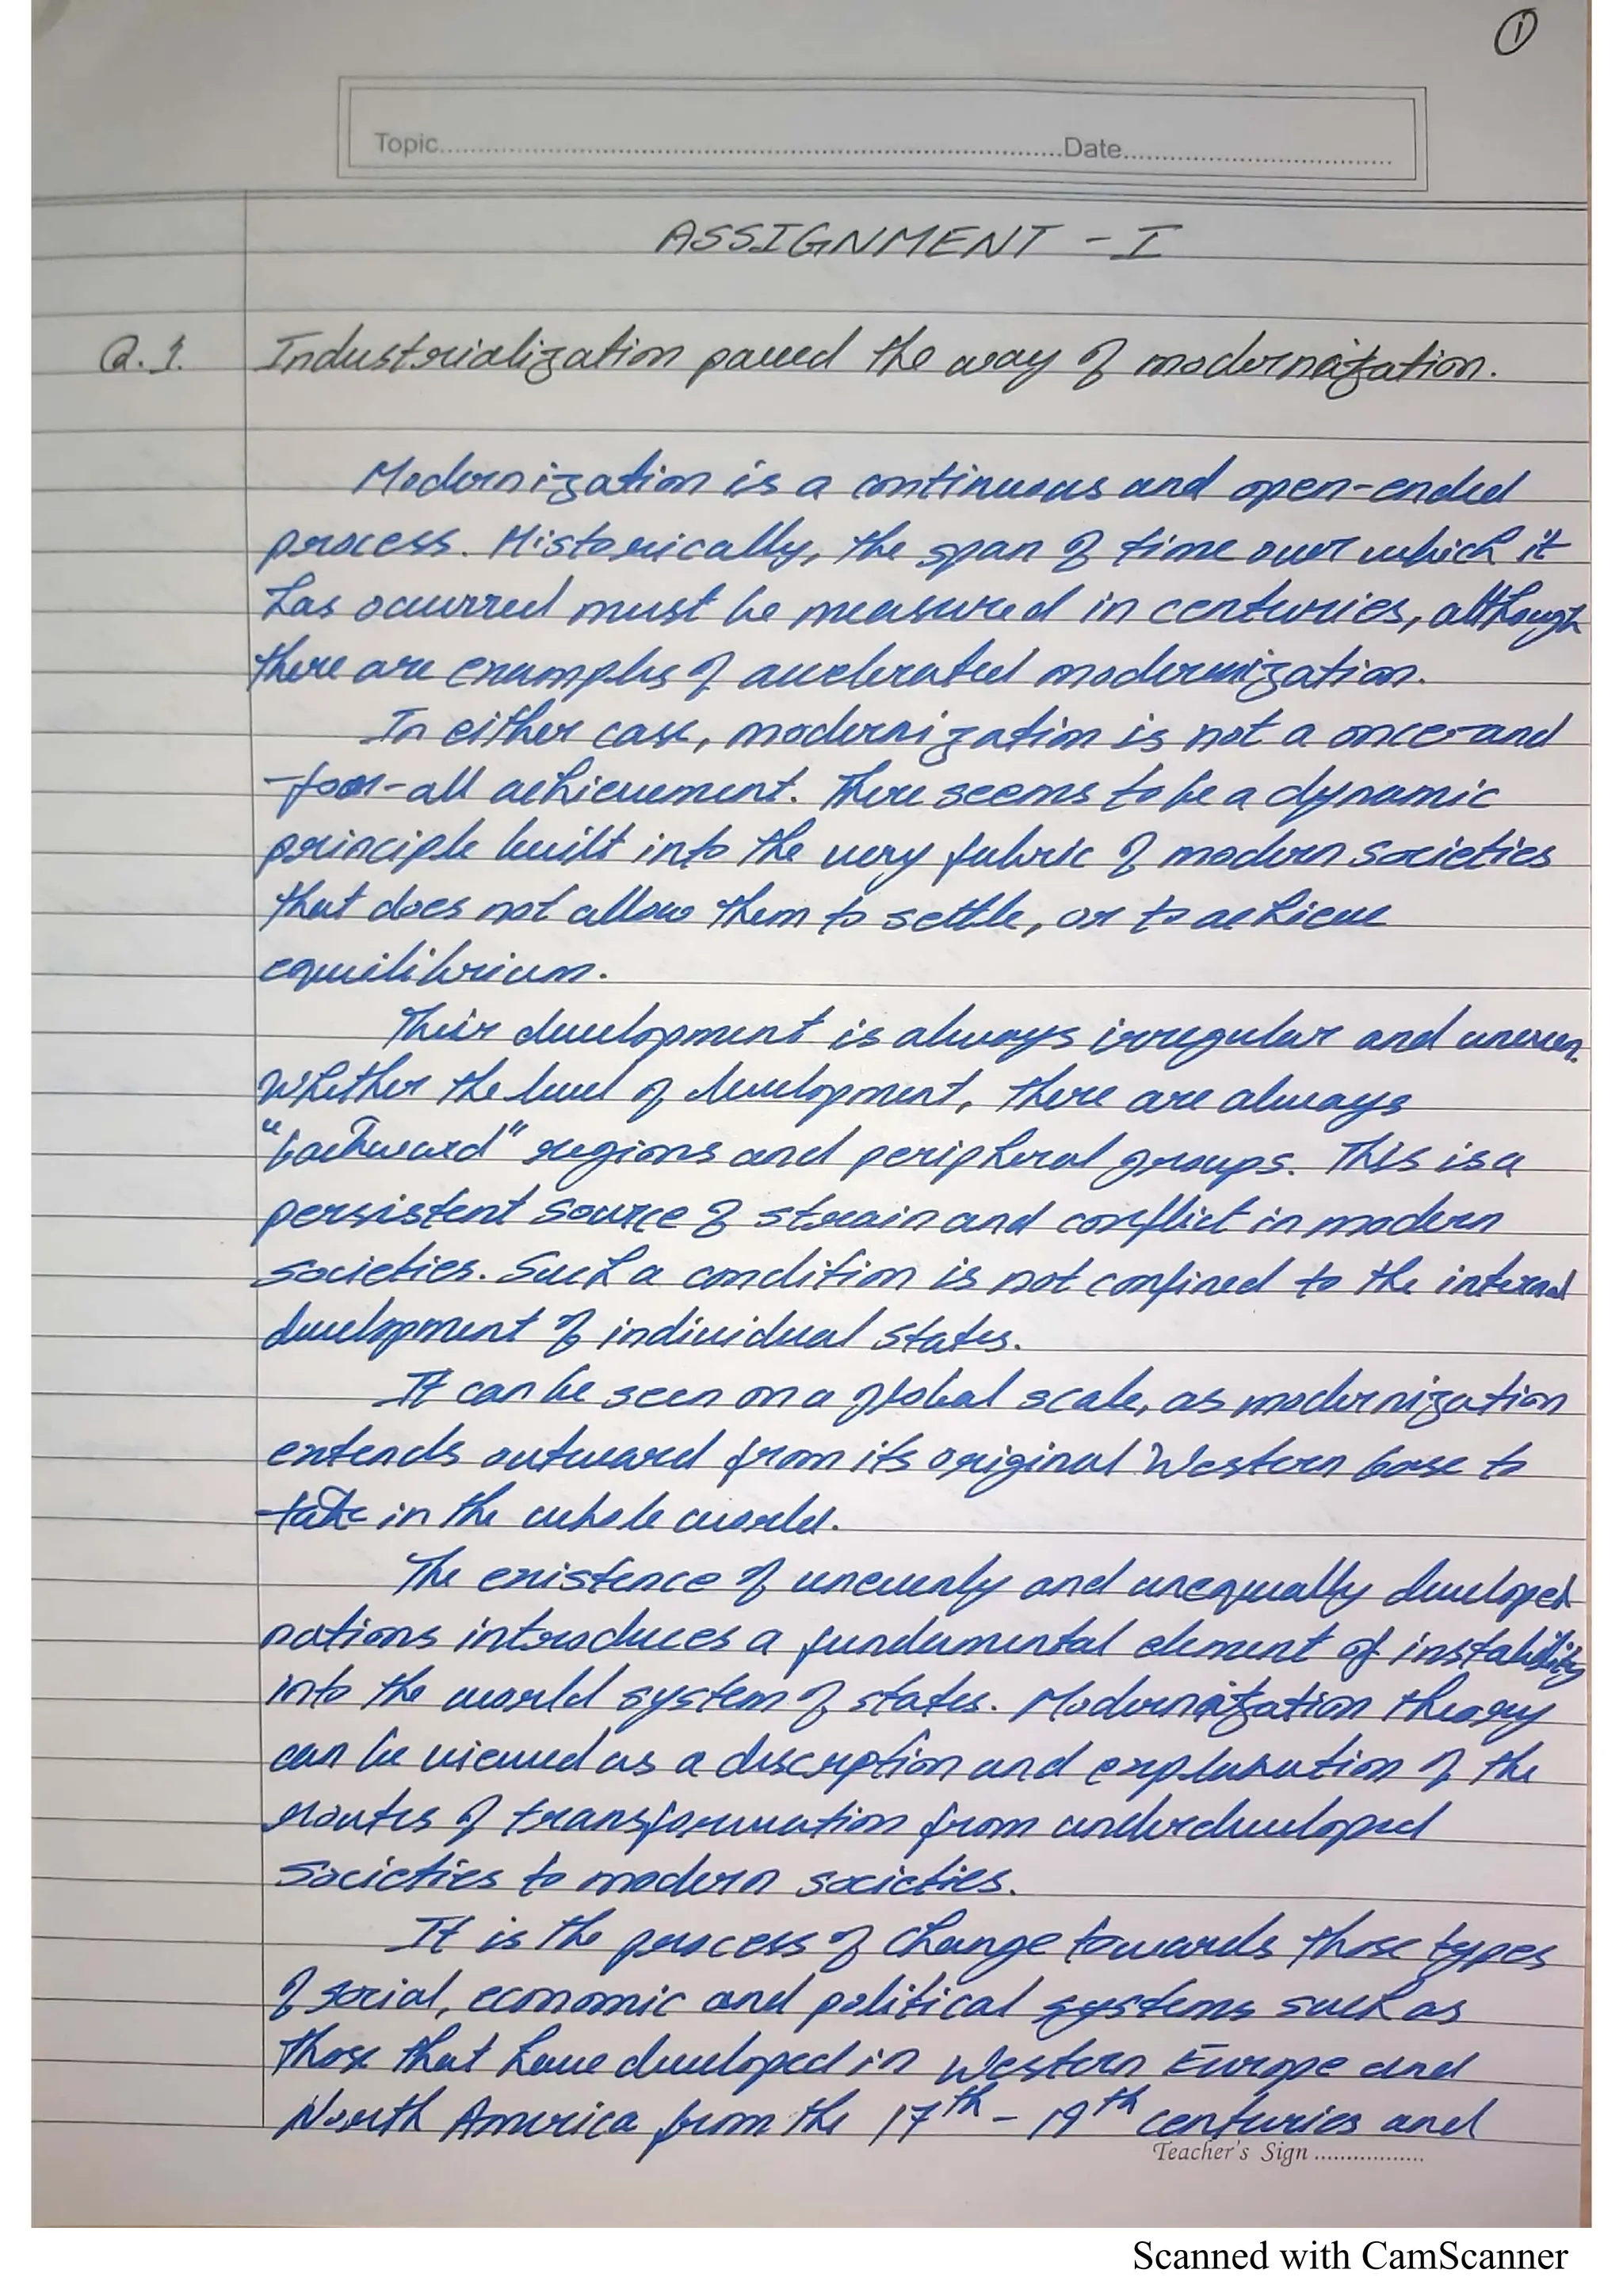 1
Topic..........Date..........
ASSIGNMENT - I
Q.1. Industrialization paved the way of modernization.
Modernization is a continuous and open-ended
process. Historically, the span of time over which it
has occurred must be measured in centuries, although
there are examples of accelerated modernization.
In either case, modernization is not a once-and
-for-all achievement. There seems to be a dynamic
principle built into the very fabric of modern societies
that does not allow them to settle, or to achieve
equilibrium.
Their development is always irregular and uneven.
Whether the level of development, there are always
"backward" regions and peripheral groups. This is a
persistent source of strain and conflict in modern
societies. Such a condition is not confined to the internal
development of individual states.
It can be seen on a global scale, as modernization
extends outward from its original Western base to
take in the whole world.
The existence of unevenly and unequally developed
nations introduces a fundamental element of instability
into the world system of states. Modernization theory
can be viewed as a description and explanation of the
routes of transformation from underdeveloped
societies to modern societies.
It is the process of change towards those types
of social, economic and political systems such as
those that have developed in Western Europe and
North America from the 17th - 19th centuries and
Teacher's Sign ..................
Scanned with CamScanner